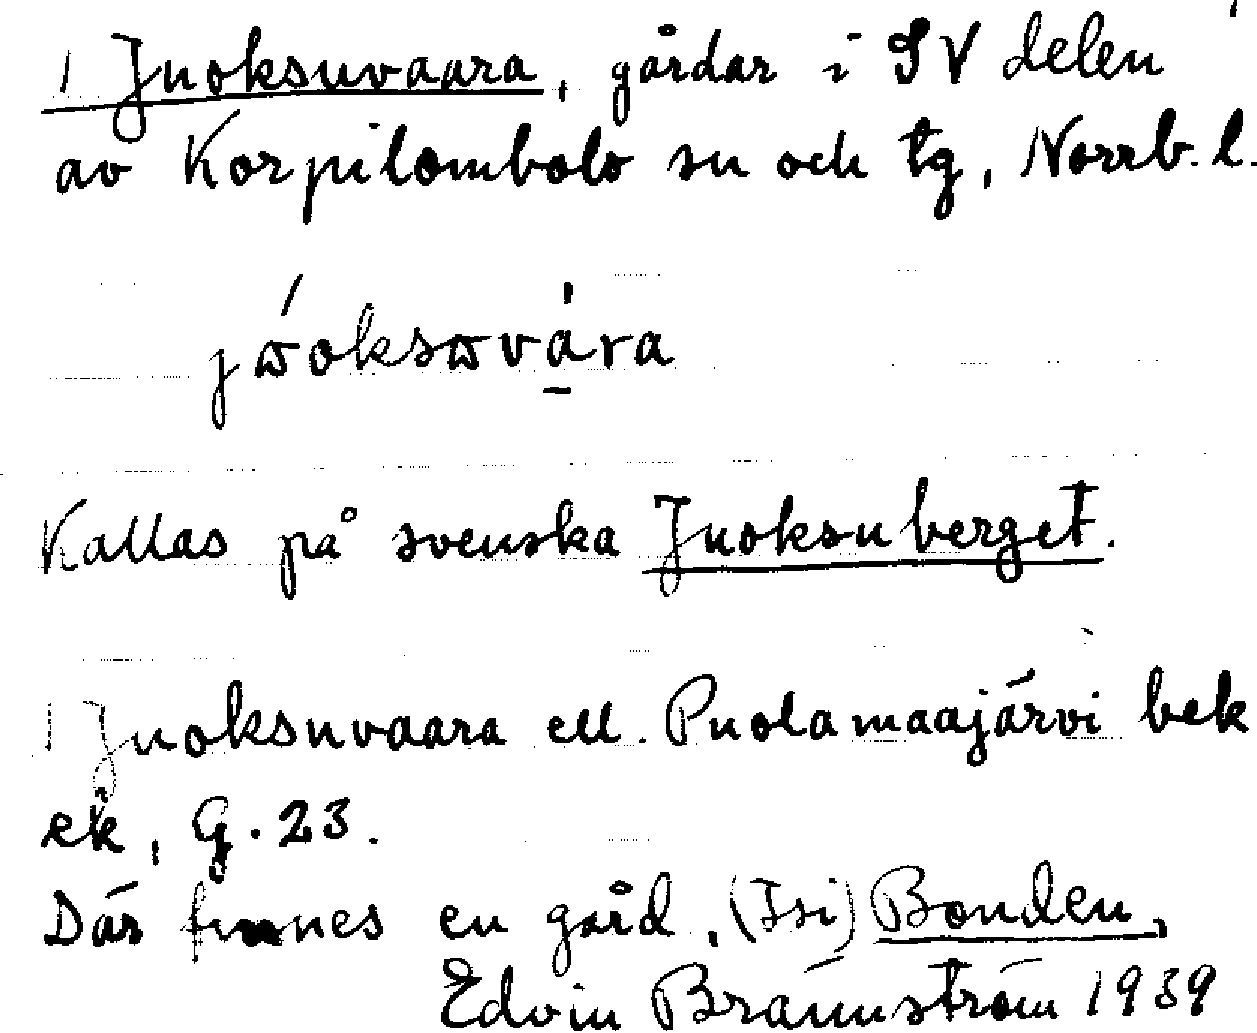 1 Juoksuvaara, gårdar i SV delen
av Korpilombolo sn och tg, Norrb. l.
jɷ́oksɷvá̱ra
Kallas på svenska Juoksuberget.
1 Juoksuvaara ell. Puolamaajärvi bek
ek, G. 23.
Där finnes en gård, (Isi) Bonden,
Edvin Brännström 1939